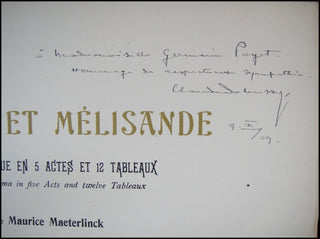 à Mademoiselle Germain Poget.
Hommage de respectueuse sympathie.
Claude Debussy
9 X/09.
ET MÉLISANDE
UE EN 5 ACTES ET 12 TABLEAUX
ma in five Acts and twelve Tableaux
Maurice Maeterlinck